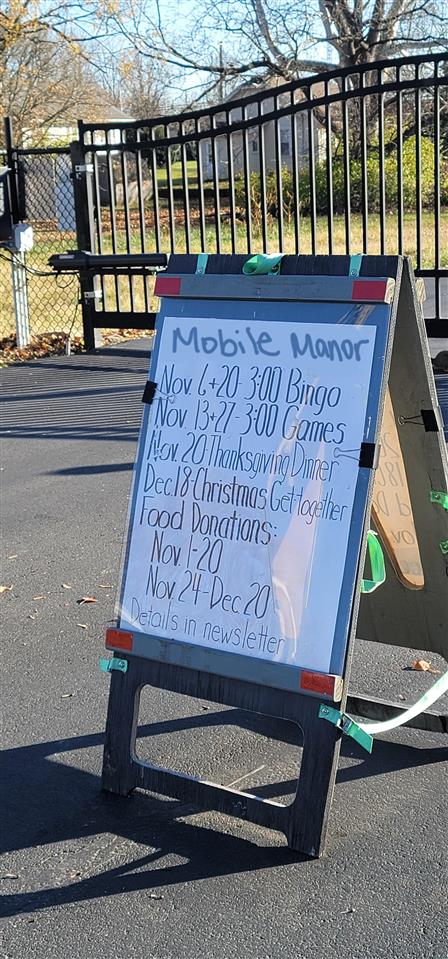 Mobile Manor
Nov. 6+20-3:00 Bingo
Nov. 13+27-3:00 Games
Nov. 20-Thanksgiving Dinner
Dec.18-Christmas Get together
Food Donations:
Nov. 1-20
Nov 24-Dec 20
Details in newsletter